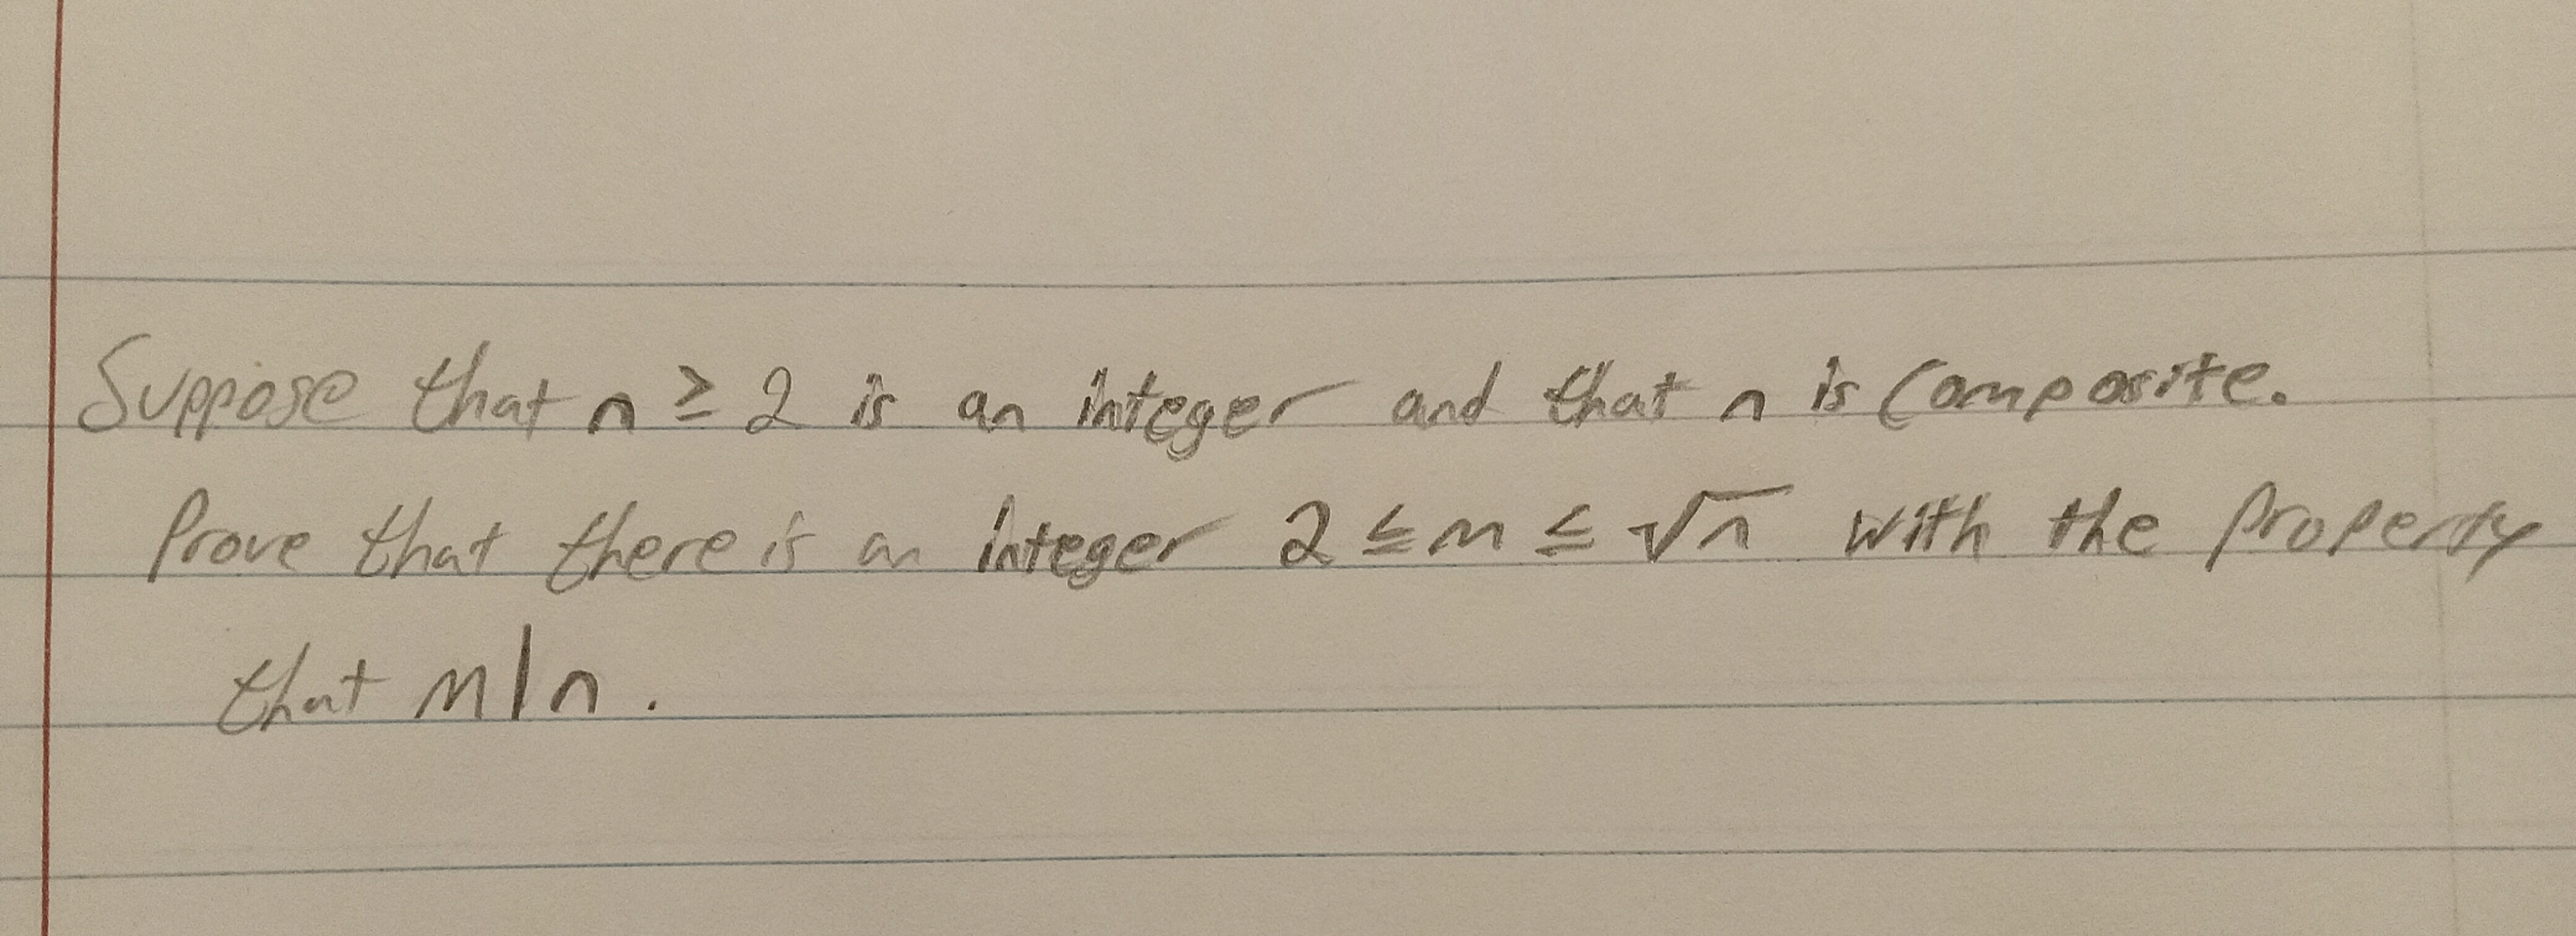 Suppose that n ≥ 2 is an integer and that n is composite.
Prove that there is an integer 2 ≤ m ≤ √n with the property
that m|n.